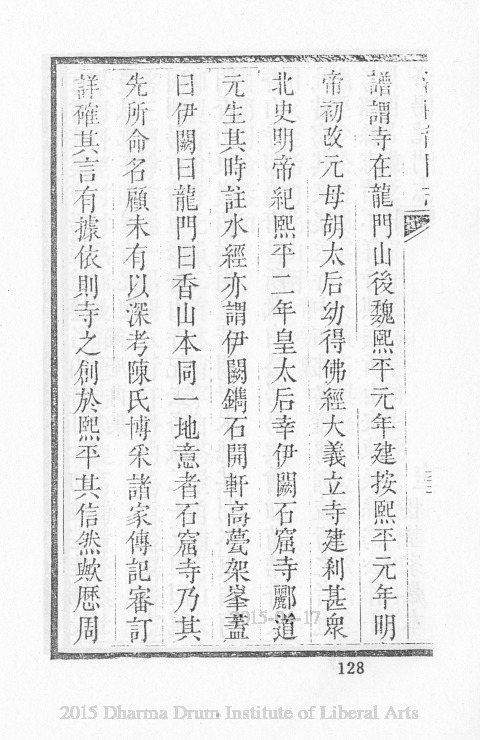 譜謂寺在龍門山後魏熙平元年建按熙平元年明
帝初改元母胡太后幼得佛經大義立寺建利甚衆
北史明帝紀熙平二年皇太后幸伊闕石窟寺酈道
元生其時註水經亦謂伊闕鐫石開軒高甍架峯蓋
曰伊闕曰龍門曰香山本同一地意者石窟寺乃其
先所命名顧未有以深考陳氏博采諸家傳記審訂
詳確其言有據依則寺之創於熙平其信然歟歷周
128
2015 Dharma Drum Institute of Liberal Arts